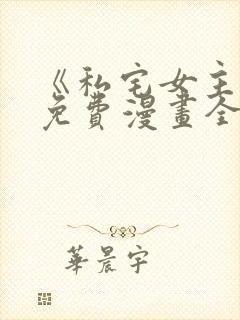 《私宅女主
免費漫畫全
華晨宇